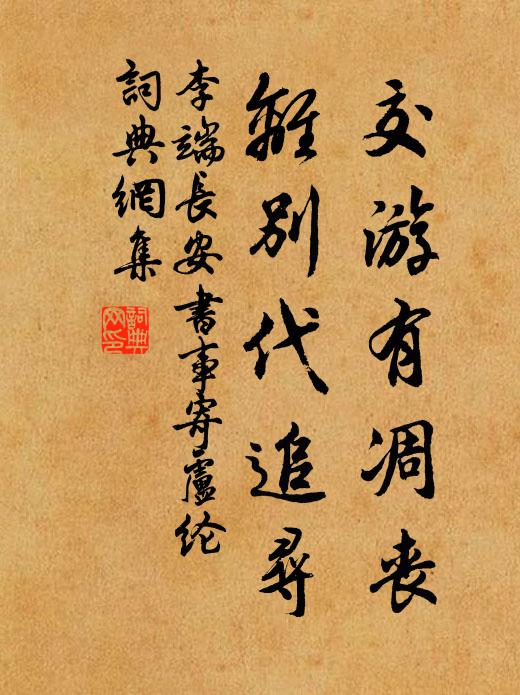 交游有凋丧
離别代追尋
李端長安書事寄盧纶
詞典網集
詞典网印